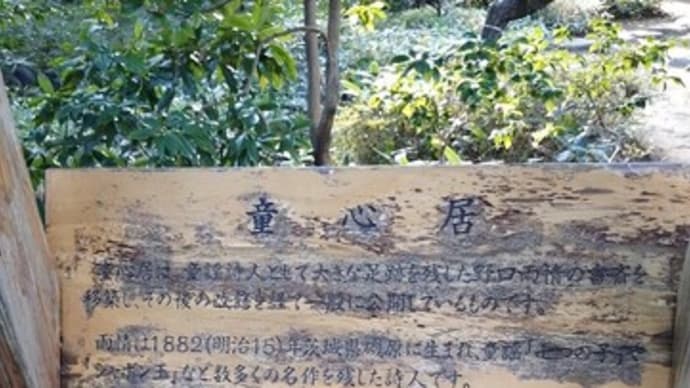 童心居
童心居は、童謡詩人として大きな足跡を残した野口雨情の書斎を
移築し、その後の改築を経て一般に公開しているものです。
雨情は1882(明治15)年茨城県磯原に生まれ、童謡「七つの子」、「
シャボン玉」など数多くの名作を残した詩人です。